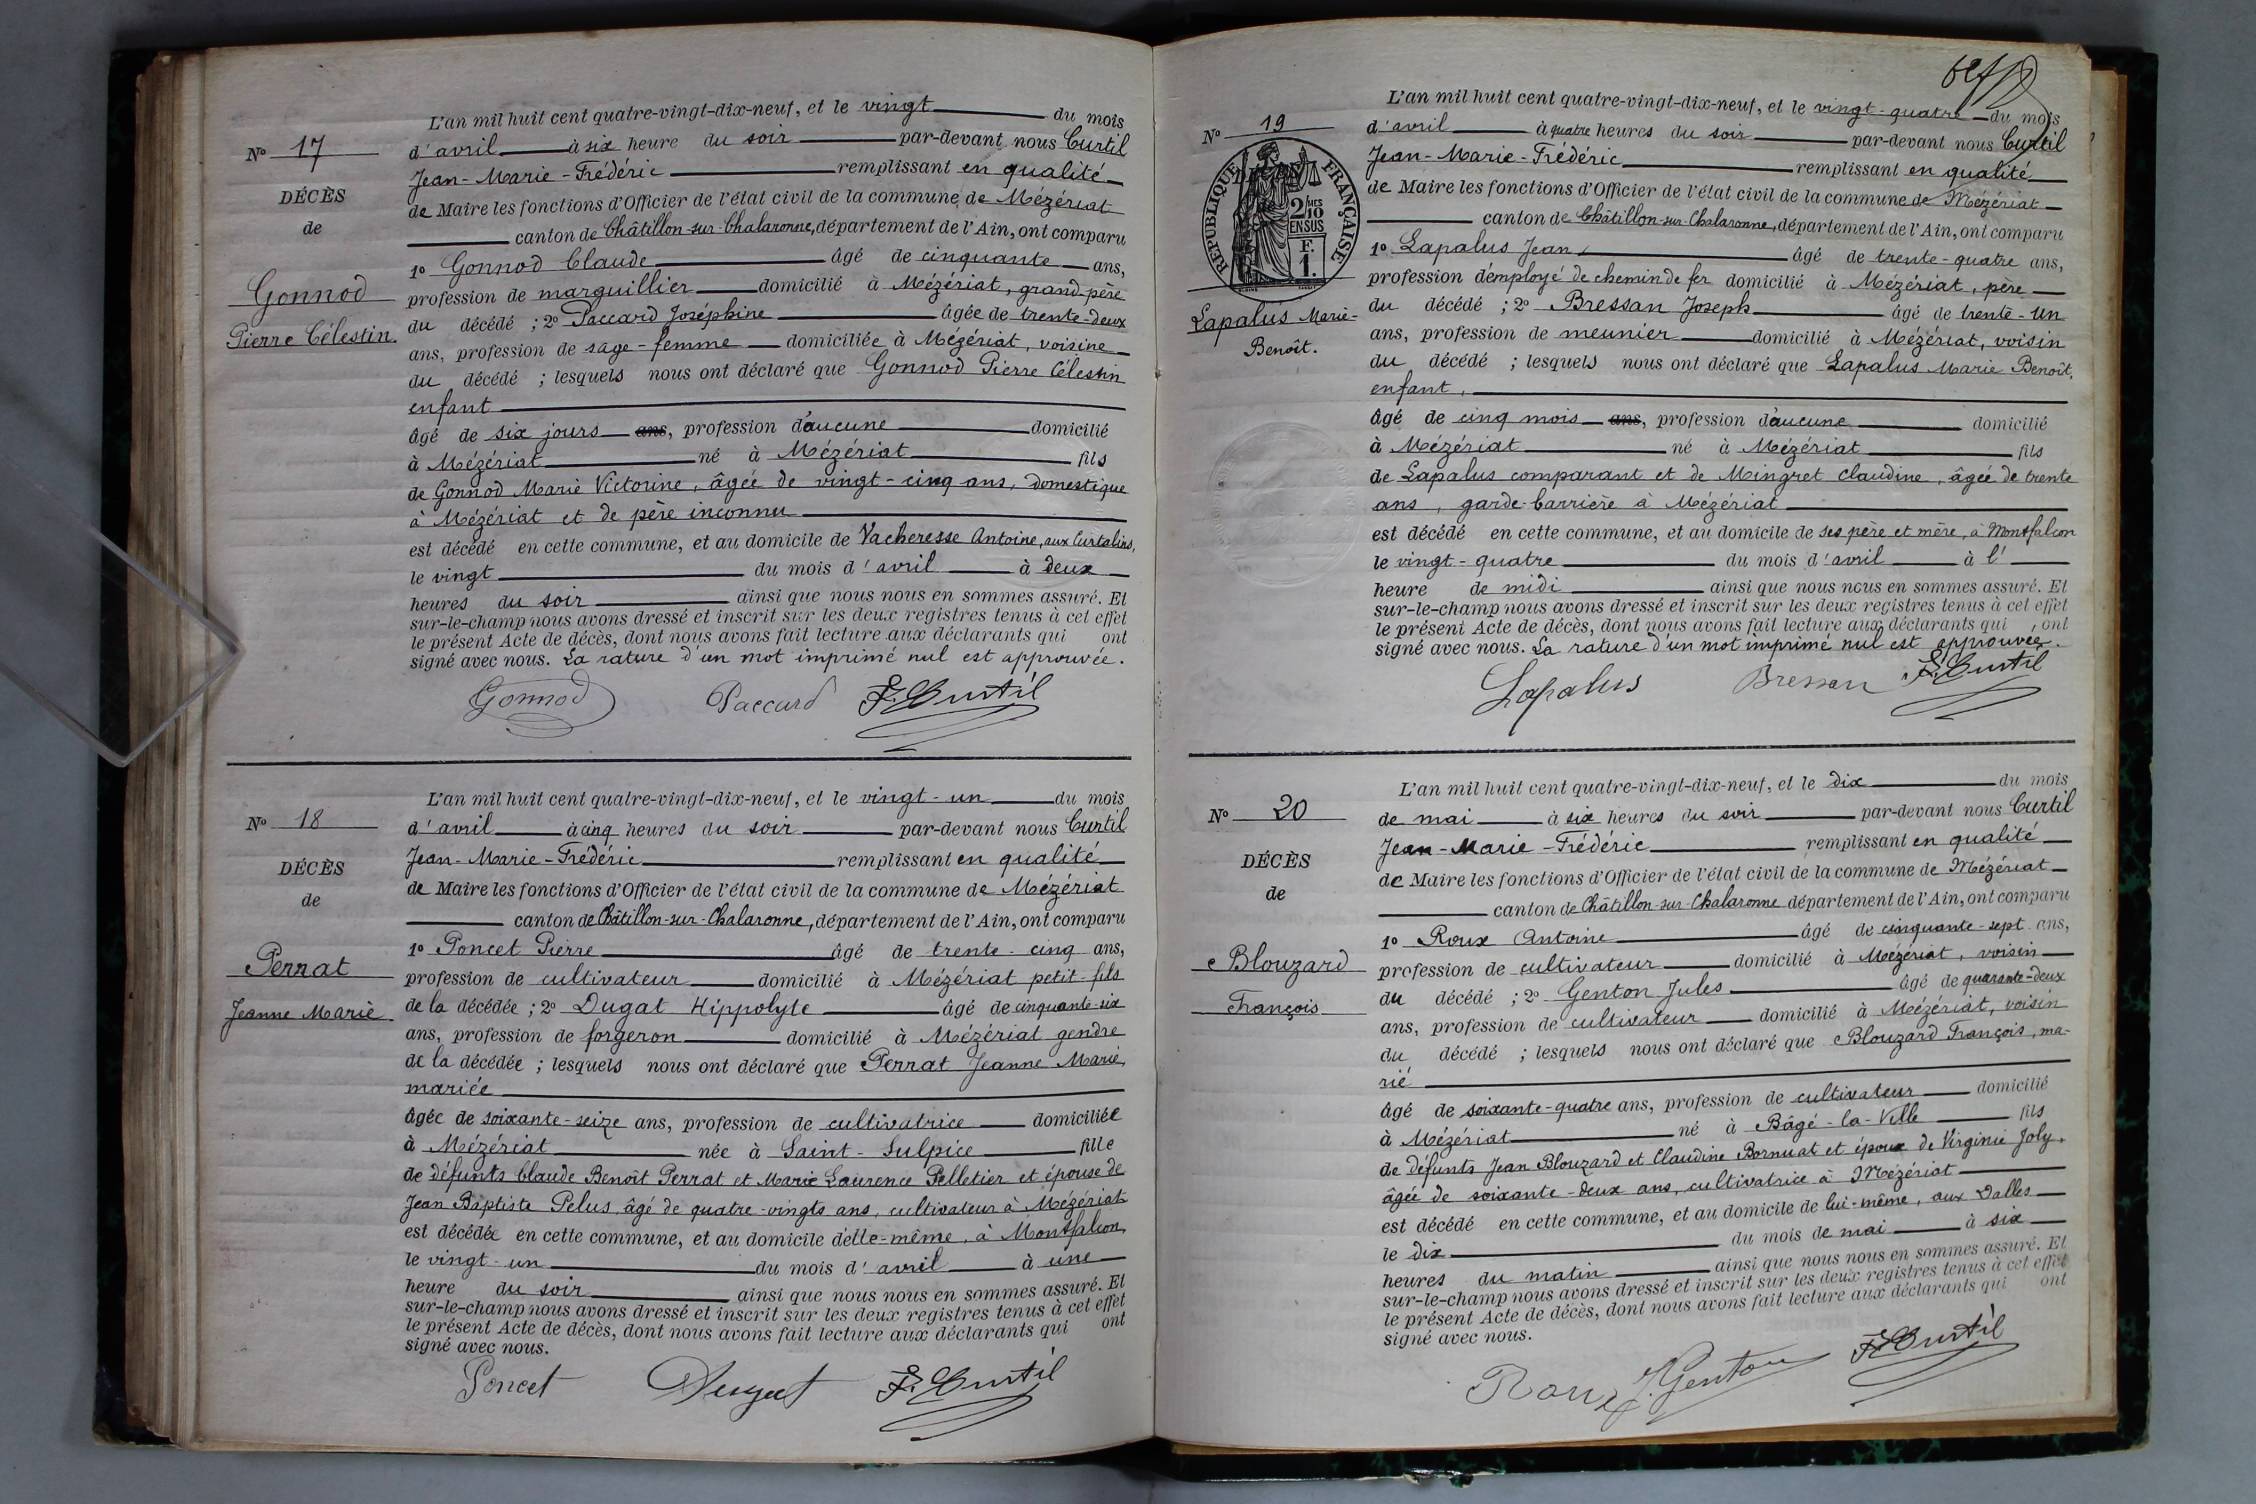 N° 17
DÉCÈS
de
Gonnod
Pierre Célestin.
L'an mil huit cent quatre-vingt-dix-neuf, et le vingt du mois
d'avril à six heure du soir par-devant nous Curtil
Jean-Marie-Frédéric remplissant en qualité
de Maire les fonctions d'Officier de l'état civil de la commune de Mézériat
canton de Châtillon-sur-Chalaronne, département de l'Ain, ont comparu
1° Gonnod Claude âgé de cinquante ans,
profession de marguillier domicilié à Mézériat, grand-père
du décédé ; 2° Paccard Joséphine âgée de trente-deux
ans, profession de sage-femme domiciliée à Mézériat, voisine
du décédé ; lesquels nous ont déclaré que Gonnod Pierre Célestin
enfant
âgé de six jours ans, profession d'aucune domicilié
à Mézériat né à Mézériat fils
de Gonnod Marie Victorine, âgée de vingt-cinq ans, domestique
à Mézériat et de père inconnu
est décédé en cette commune, et au domicile de Vacheresse Antoine, aux Curtalins,
le vingt du mois d'avril à deux
heures du soir ainsi que nous nous en sommes assuré. Et
sur-le-champ nous avons dressé et inscrit sur les deux registres tenus à cet effet
le présent Acte de décès, dont nous avons fait lecture aux déclarants qui ont
signé avec nous. La rature d'un mot imprimé nul est approuvée.
Gonnod Paccard F. Curtil
N° 18
DÉCÈS
de
Perrat
Jeanne Marie
L'an mil huit cent quatre-vingt-dix-neuf, et le vingt-un du mois
d'avril à cinq heures du soir par-devant nous Curtil
Jean-Marie-Frédéric remplissant en qualité
de Maire les fonctions d'Officier de l'état civil de la commune de Mézériat
canton de Châtillon-sur-Chalaronne, département de l'Ain, ont comparu
1° Poncet Pierre âgé de trente-cinq ans,
profession de cultivateur domicilié à Mézériat petit-fils
de la décédée ; 2° Dugat Hippolyte âgé de cinquante-six
ans, profession de forgeron domicilié à Mézériat gendre
de la décédée ; lesquels nous ont déclaré que Perrat Jeanne Marie,
mariée
âgée de soixante-seize ans, profession de cultivatrice domiciliée
à Mézériat née à Saint-Sulpice fille
de défunts Claude Benoît Perrat et Marie Laurence Pelletier et épouse de
Jean Baptiste Pelus, âgé de quatre-vingts ans, cultivateur à Mézériat
est décédée en cette commune, et au domicile d'elle-même, à Montfalcon,
le vingt-un du mois d'avril à une
heure du soir ainsi que nous nous en sommes assuré. Et
sur-le-champ nous avons dressé et inscrit sur les deux registres tenus à cet effet
le présent Acte de décès, dont nous avons fait lecture aux déclarants qui ont
signé avec nous.
Poncet Dugat F. Curtil
N° 19
RÉPUBLIQUE FRANÇAISE
2/10 MES
EN SUS
F.
1.
Lapalus Marie-
Benoît.
L'an mil huit cent quatre-vingt-dix-neuf, et le vingt-quatre du mois
d'avril à quatre heures du soir par-devant nous Curtil
Jean-Marie-Frédéric remplissant en qualité
de Maire les fonctions d'Officier de l'état civil de la commune de Mézériat
canton de Châtillon-sur-Chalaronne, département de l'Ain, ont comparu
1° Lapalus Jean âgé de trente-quatre ans,
profession d'employé de chemin de fer domicilié à Mézériat, père
du décédé ; 2° Bressan Joseph âgé de trente-un
ans, profession de meunier domicilié à Mézériat, voisin
du décédé ; lesquels nous ont déclaré que Lapalus Marie Benoît,
enfant,
âgé de cinq mois ans, profession d'aucune domicilié
à Mézériat né à Mézériat fils
de Lapalus comparant et de Mingret Claudine, âgée de trente
ans, garde-barrière à Mézériat
est décédé en cette commune, et au domicile de ses père et mère, à Montfalcon
le vingt-quatre du mois d'avril à l'
heure de midi ainsi que nous nous en sommes assuré. Et
sur-le-champ nous avons dressé et inscrit sur les deux registres tenus à cet effet
le présent Acte de décès, dont nous avons fait lecture aux déclarants qui ont
signé avec nous. La rature d'un mot imprimé nul est approuvée.
Lapalus Bressan F. Curtil
N° 20
DÉCÈS
de
Blouzard
François
L'an mil huit cent quatre-vingt-dix-neuf, et le dix du mois
de mai à six heures du soir par-devant nous Curtil
Jean-Marie-Frédéric remplissant en qualité
de Maire les fonctions d'Officier de l'état civil de la commune de Mézériat
canton de Châtillon-sur-Chalaronne département de l'Ain, ont comparu
1° Roux Antoine âgé de cinquante-sept ans,
profession de cultivateur domicilié à Mézériat, voisin
du décédé ; 2° Genton Jules âgé de quarante-deux
ans, profession de cultivateur domicilié à Mézériat, voisin
du décédé ; lesquels nous ont déclaré que Blouzard François, ma-
rié
âgé de soixante-quatre ans, profession de cultivateur domicilié
à Mézériat né à Bâgé-la-Ville fils
de défunts Jean Blouzard et Claudine Bornuat et époux de Virginie Joly,
âgée de soixante-deux ans, cultivatrice à Mézériat
est décédé en cette commune, et au domicile de lui-même, aux Dalles
le dix du mois de mai à six
heures du matin ainsi que nous nous en sommes assuré. Et
sur-le-champ nous avons dressé et inscrit sur les deux registres tenus à cet effet
le présent Acte de décès, dont nous avons fait lecture aux déclarants qui ont
signé avec nous.
Roux J. Genton F. Curtil